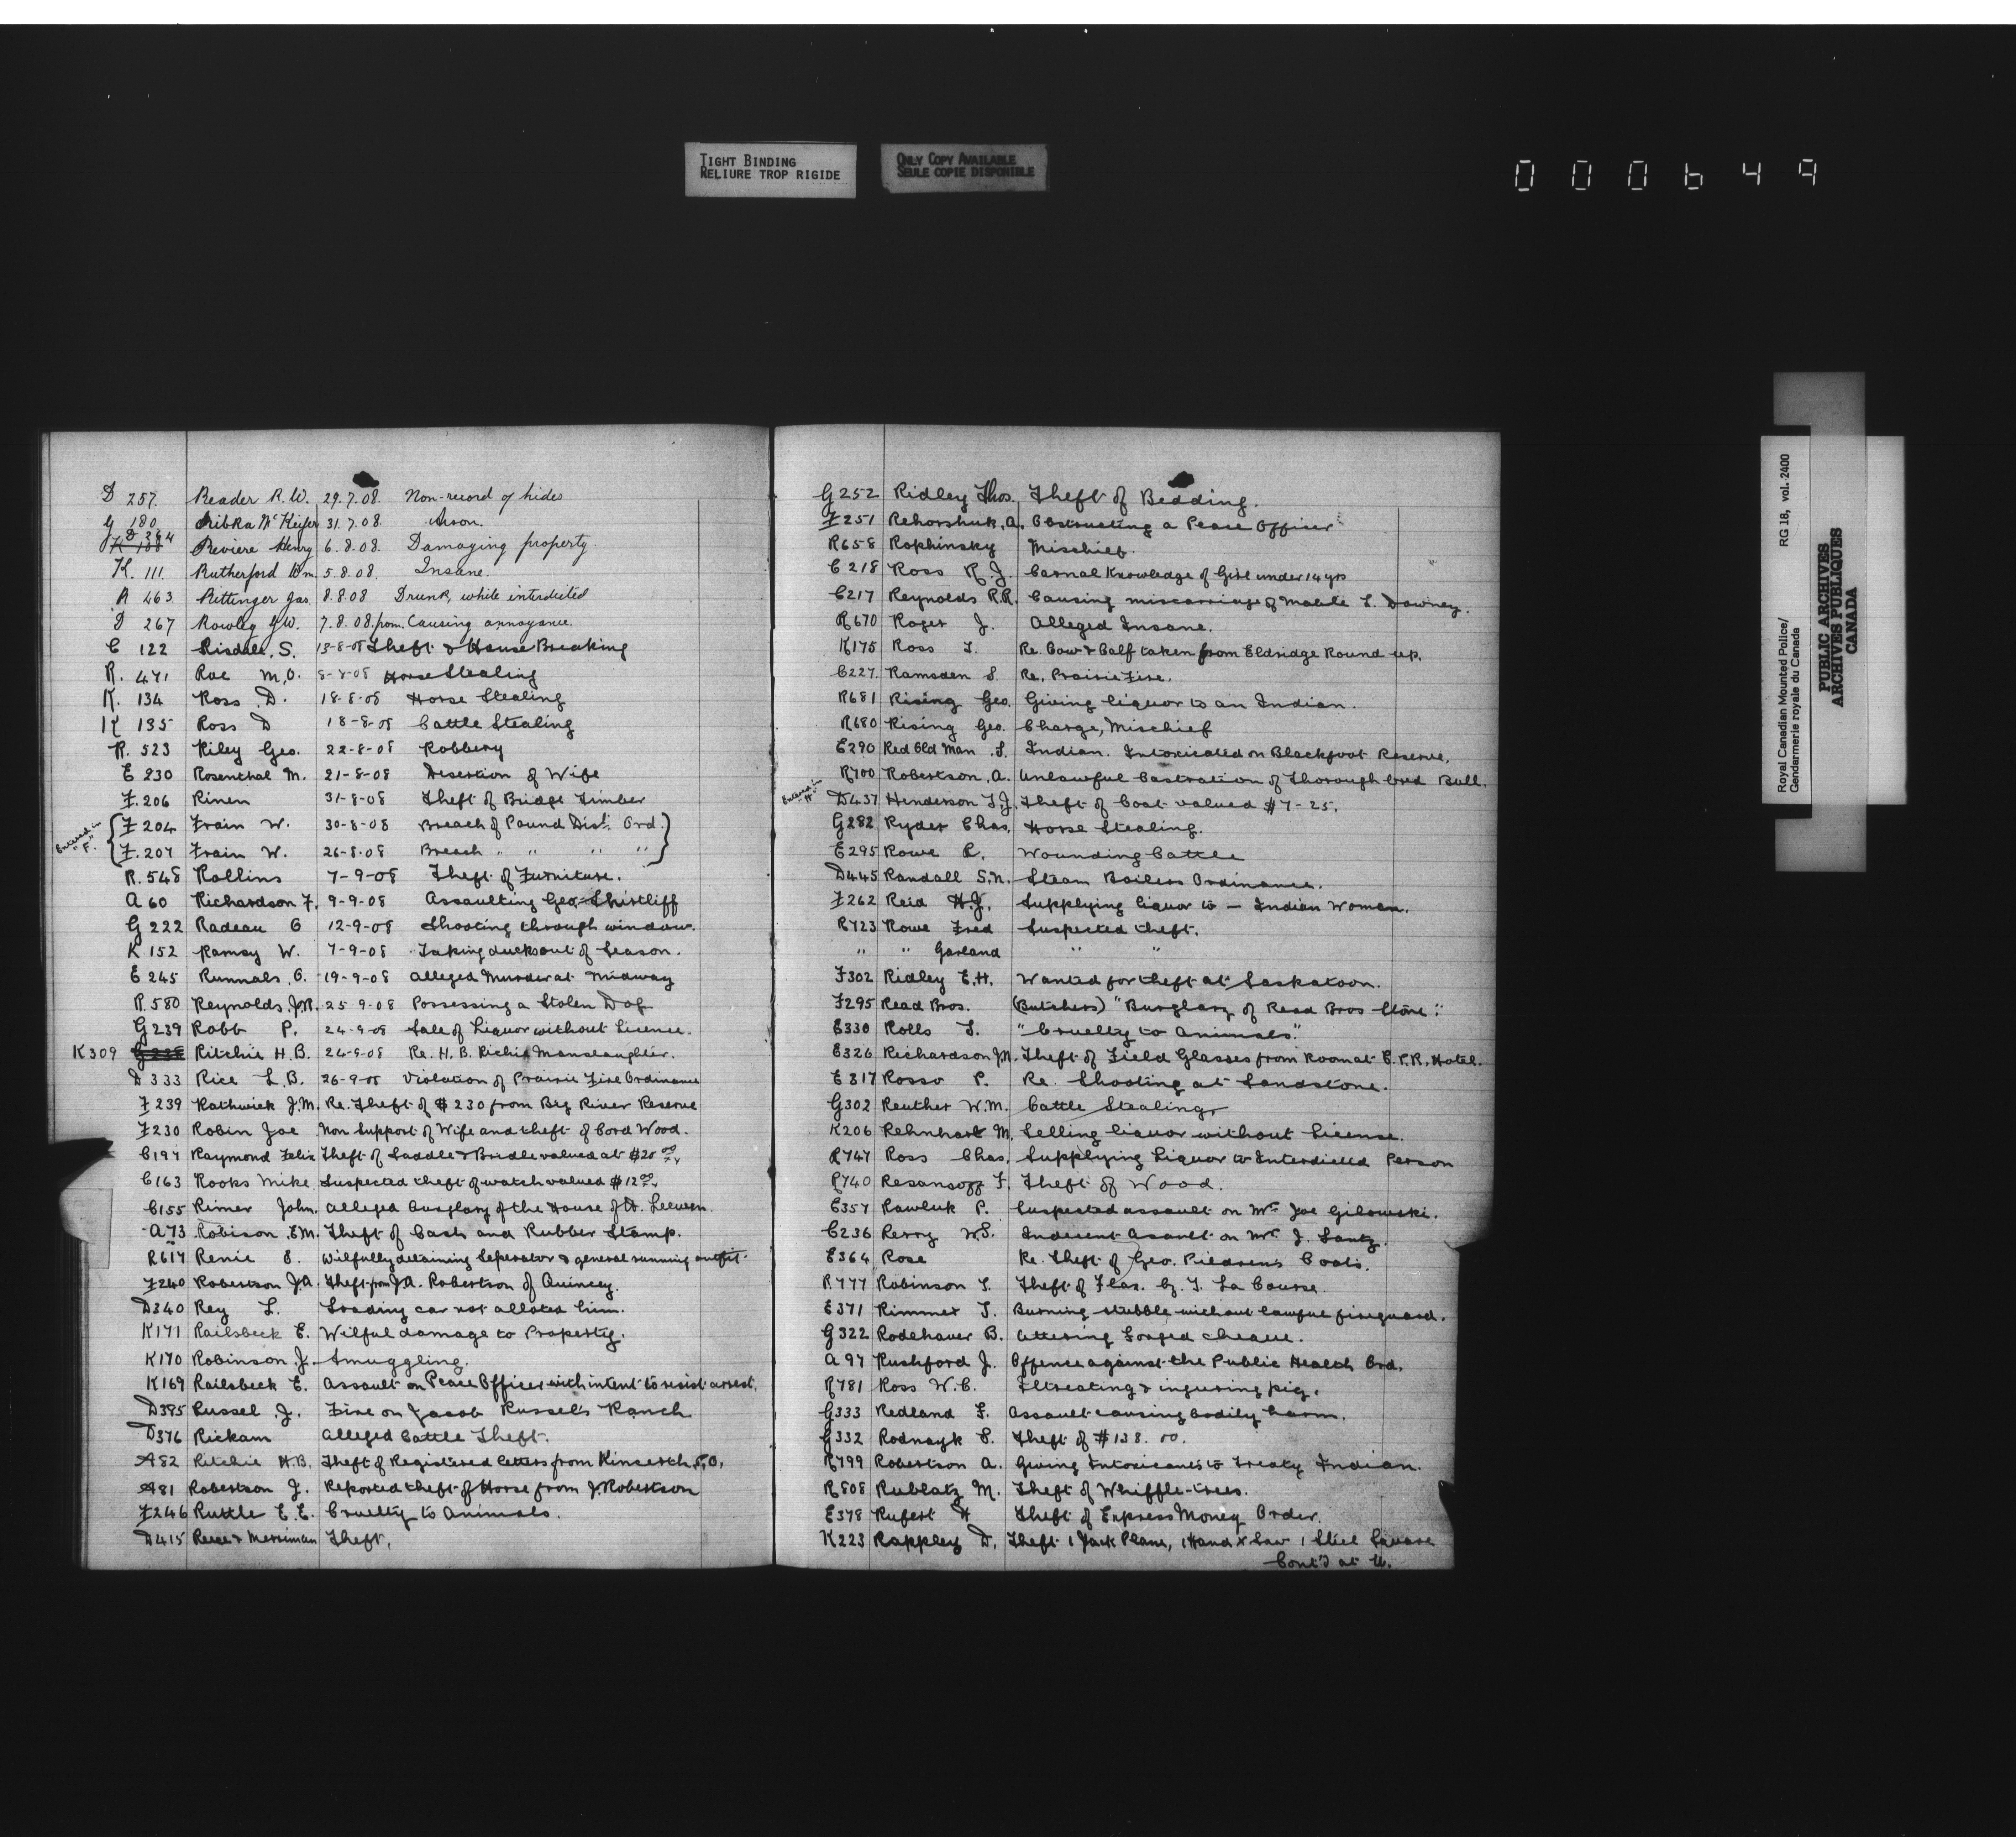 TIGHT BINDING
RELIURE TROP RIGIDE
ONLY COPY AVAILABLE
SEULE COPIE DISPONIBLE
000649
D 257. Reader R.W. 29.7.08. Non-record of hides
G 180 Ribka McKeifer 31.7.08. Arson.
D 384
K 188 Reviere Henry 6.8.08. Damaging property.
K. 111. Rutherford Wm. 5.8.08. Insane.
R 463 Rittinger Jas. 8.8.08 Drunk while interdicted
D 267 Rowley J.W. 7.8.08. Causing annoyance.
C 122 Risdale, S. 13-8-08 Theft & House Breaking
R. 471 Rae M.O. 8-8-08 Horse Stealing
K. 134 Ross D. 18-8-08 Horse Stealing
K 135 Ross D 18-8-08 Cattle Stealing
R. 523 Riley Geo. 22-8-08 Robbery
E 230 Rosenthal M. 21-8-08 Desertion of Wife
F. 206 Rinen 31-8-08 Theft of Bridge Timber
Entered in "F".
F 204 Frain W. 30-8-08 Breach of Pound Dist. Ord.
F. 207 Frain W. 26-8-08 Breach " " " "
R. 548 Rollins 7-9-08 Theft of Furniture.
A 60 Richardson F. 9-9-08 Assaulting Geo. Shirtliff
G 222 Radeau O 12-9-08 Shooting through window.
K 152 Ramsay W. 7-9-08 Taking ducks out of Season.
E 245 Runnals, O. 19-9-08 Alleged Murder at Midway
R. 580 Reynolds J.R. 25 9-08 Possessing a Stolen Dog
G 239 Robb P. 24-9-08 Sale of Liquor without Licence.
K309 G 238 Ritchie H.B. 24-9-08 Re. H.B. Richie Manslaughter.
D 333 Rice L.B. 26-9-08 Violation of Prairie Fire Ordinance
F 239 Rathwick J.M. Re. Theft of $230 from Big River Reserve
F230 Robin Joe Non Support of Wife and theft of Cord Wood.
C197 Raymond Felix Theft of Saddle & Bridle valued at $20 00
C163 Rooks Mike Suspected theft of watch valued $12 00
C155 Rimer John. Alleged burglary of the House of A. Leeuwen.
A73 Robison E.M. Theft of Cash and Rubber Stamp.
R617 Renie E. Wilfully detaining Seperator & general running outfit.
F240 Robertson J.A. Theft from J.A. Robertson of Quincey.
D340 Rey L. Loading car not alloted him.
K171 Railsbeck E. Wilful damage to Property.
K170 Robinson J. Smuggling.
K169 Railsbeck E. Assault on Peace Officer with intent to resist arrest.
D395 Russel J. Fire on Jacob Russel's Ranch
D376 Rickam Alleged Cattle Theft.
A82 Ritchie H.B. Theft of Registered letters from Kinserth P.O.
A81 Robertson J. Reported theft of Horse from J. Robertson
F246 Ruttle E.E. Cruelty to Animals.
D415 Reece & Merriman Theft.
G252 Ridley Thos. Theft of Bedding.
F251 Rehorshuk, A. Obstructing a Peace Officer
R658 Rophinsky Mischief.
C218 Ross R.J. Carnal Knowledge of Girl under 14 yrs
C217 Reynolds R.R. Causing miscarriage of Mable L. Downey.
R670 Roger J. Alleged Insane.
K175 Ross T. Re. Cow & Calf taken from Eldridge Round up.
C227. Ramsden S. Re. Prairie Fire.
R681 Rising Geo. Giving liquor to an Indian.
R680 Rising Geo. Charge, Mischief
E290 Red Old Man S. Indian. Intoxicated on Blackfoot Reserve.
R700 Robertson, A. Unlawful Castration of Thorough bred Bull.
Entered in "H"
D437 Henderson T.J. Theft of Coat valued $7-25.
G282 Ryder Chas. Horse Stealing.
E295 Rowe R. Wounding Cattle
D445 Randall S.N. Steam Boilers Ordinance.
F262 Reid H.J. Supplying liquor to - Indian Woman.
R723 Rowe Fred Suspected theft.
" " Garland " "
F302 Ridley E.H. Wanted for theft at Saskatoon.
F295 Read Bros. (Butchers) "Burglary of Read Bros Store".
E330 Rolls T. "Cruelty to Animals".
E326 Richardson J.M. Theft of Field Glasses from Room at C.P.R. Hotel.
E317 Rosso P. Re. Shooting at Sandstone.
G302 Reuther W.M. Cattle Stealing
K206 Rehnhart M. Selling liquor without License.
R747 Ross Chas. Supplying Liquor to Interdicted Person
R740 Resansoff F. Theft of Wood.
E357 Rawluk P. Suspected assault on Mr. Joe Gilowski.
C236 Rerry W.S. Indecent Assault on Mrs J. Lantz.
E364 Rose Re. Theft of Geo. Piedren's Coats.
R777 Robinson T. Theft of Flax. by T. La Course.
E371 Rimmer T. Burning stubble without lawful fireguard.
G322 Rodehaver B. Uttering Forged cheque.
A97 Rushford J. Offence against the Public Health Ord.
R781 Ross W.C. Illtreating & injuring pig.
G333 Redland F. Assault causing bodily harm.
G332 Rodnayk S. Theft of $138.00.
R799 Robertson A. Giving Intoxicants to Treaty Indian.
R808 Rublatz M. Theft of Whiffle-trees.
E378 Rufert H Theft of Express Money Order.
K223 Rappley D. Theft 1 Jack Plane, 1 Hand X Saw 1 Steel Square
Cont'd at U.
Royal Canadian Mounted Police/
Gendarmerie royale du Canada
RG 18, vol. 2400
PUBLIC ARCHIVES
ARCHIVES PUBLIQUES
CANADA